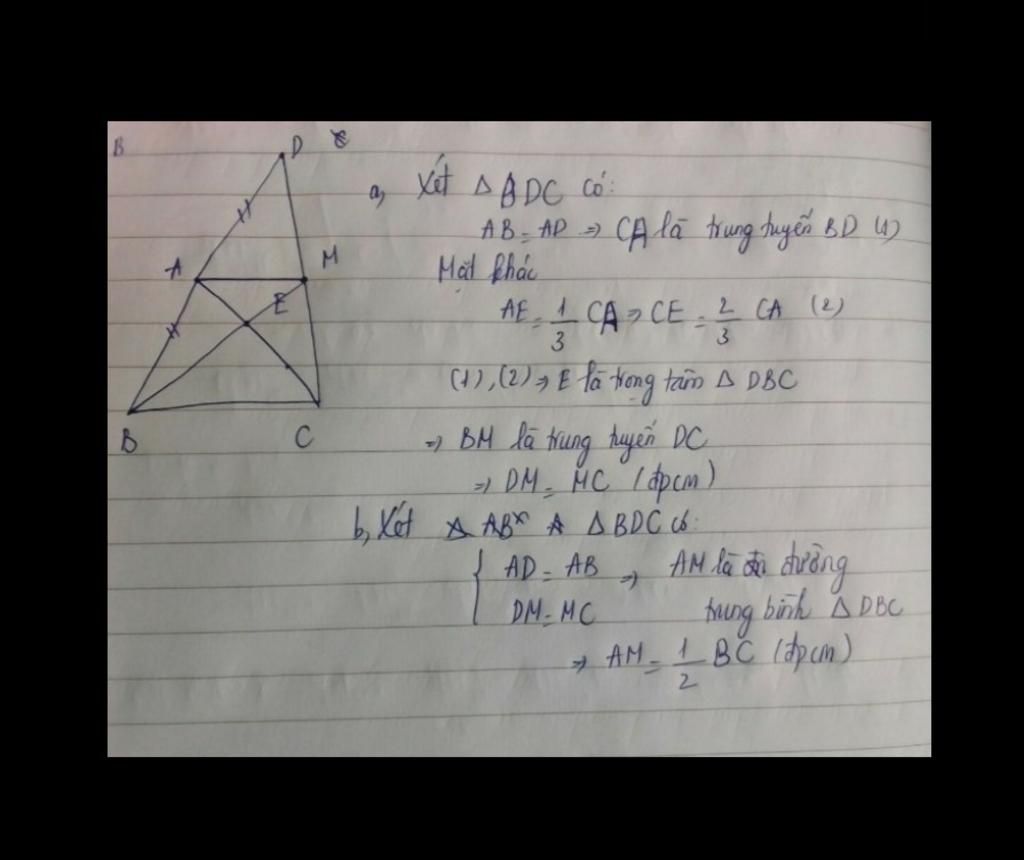 B D
A M
E
B C
a, Xét Δ BDC có:
AB = AD => CA là trung tuyến BD (1)
Mặt khác
AE = 1/3 CA => CE = 2/3 CA (2)
(1), (2) => E là trọng tâm Δ DBC
=> BM là trung tuyến DC
=> DM = MC (đpcm)
b, Xét Δ BDC có:
AD = AB => AM là đường
DM = MC trung bình Δ DBC
=> AM = 1/2 BC (đpcm)